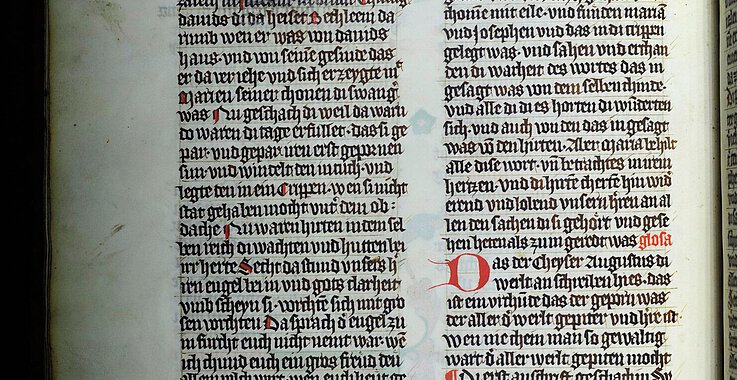 dauids di da heiset Bethleem da
rumb wen er was von dauids
haus · vnd von seinē gesinde das
er da veriehe vnd sich erzeygte mͭ
Marien seiner chonen di swang̾
was Nu geschach di weil da warn
do waren di tage erfullet · das si ge
par · vnd gepar iren erst gepornen
sun · vnd windelt den in tuch · vnd
legte den in ein Crippen · wen si nicht
stat gehaben mocht vnt̾ dem ob ·
dache Nu waren hirten in dem sel
ben reich di wachten vnd hutten der
irr herte Secht da stund vnsers h̾
ren engel bei in vnd gots clarheit
vmb scheyn si · vorchtē sich mit gro
sen vorchten Da sprach d̾ engel zu
in furcht euch nicht nemt war · wē
ich chund euch ein gros freud den
chomē mit eile · vnd funden mariā
vnd Josephen vnd das in di crippen
gelegt was · vnd sahen vnd erchan
den di warheit des wortes das in
gesagt was von dem selben chinde ·
vnd alle di di es horten di wūderten
sich · vnd auch von den das in gesagt
was vō den hirten · Aber maria behilt
alle dise wort · vn̄ betrachtes in irem
hertzen · vnd di hirtē chertē hin wid̾
erend vnd lobend vnsern h̾ren an al
len den sachen di si gehort vnd gese
hen heten als zu im geredt was glosa
Das der Cheyser Augustus di
werlt an schreiben hies · das
ist ein vrchūde das der geporn was
der aller d̾ werlt gepiter vnd h̾re ist ·
wen nie chem man so gewaltig
wart d̾ aller werlt gepiten mocht
Di erst anschrift geschach in Sy